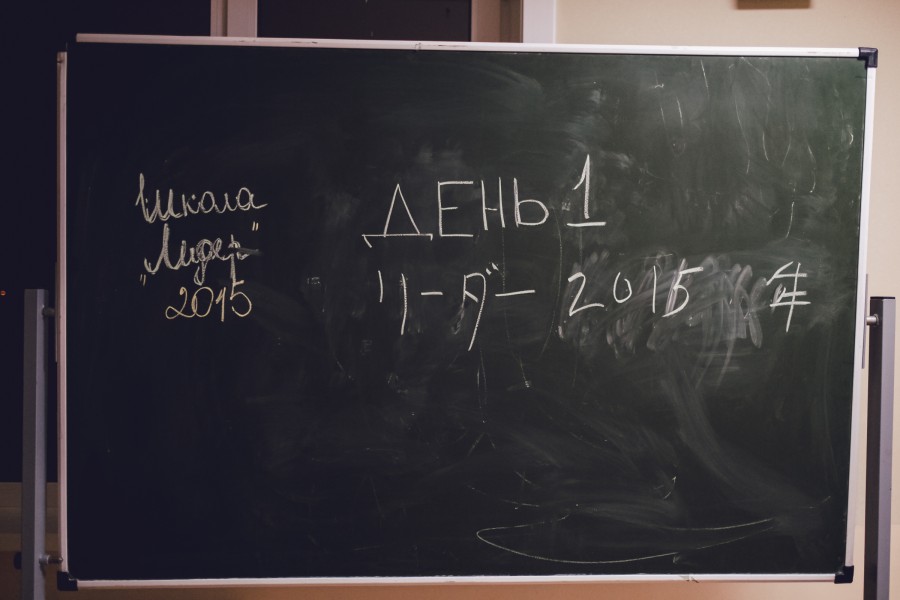 Школа
„Лидер“
2015
ДЕНЬ 1
リーダー 2015 年